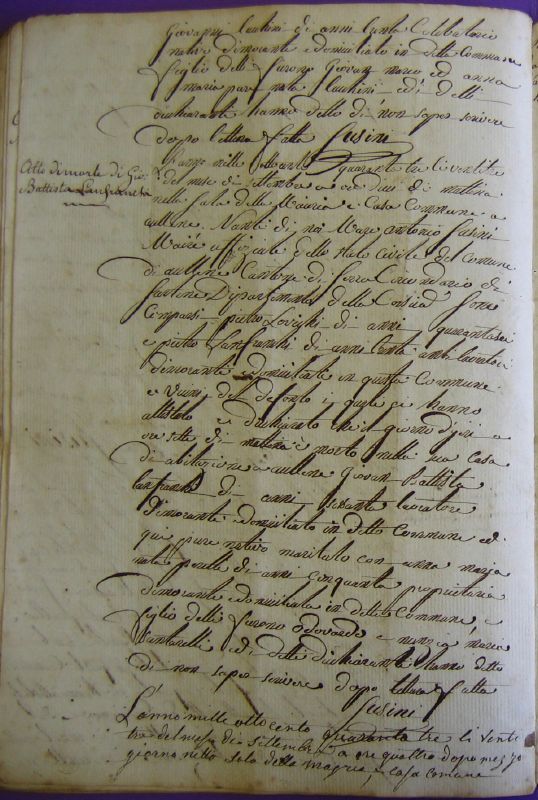 Giovanni Lantoni di anni trenta Celebatario
nativo dimorante e domiciliato in detta Commune
figlio delli furono Giovan Marco ed anna
maria pure nata ed i detti
dichiaranti hanno detto di non saper scrivere
dopo lettura fatta Susini
Atto di morte di Gio:
Battista Lanfranchi
L'anno mille ottocento quaranta tre li ventitre
del mese di settembre a ore dieci di mattina
nella Sala della Mairia e Casa Commune a
aullene Nanti di noi Marc'antonio Susini
Maire uffiziale dello Stato Civile del Comune
di aullene Cantone di Serra Circondario di
Sartene Dipartimento della Corsica Sono
Comparsi pietro di anni quarantasei
e pietro Lanfranchi di anni trenta ambi lavoratori
dimoranti e domiciliati in questa Commune
e Vicini del defonto i quali ci hanno
attestato e dichiarato che il giorno d'jeri a
ore sette di mattina è morto nella sua casa
di abitazione a aullene Giovan Battista
Lanfranchi di anni sessanta lavoratore
dimorante e domiciliato in detto Commune ed
qui pure nativo maritato con anna maria
nata di anni cinquanta proprietaria
dimorante e domiciliata in detta Commune e
figlio delli furono Odoardo e nunzia maria
Santarelli ed i detti dichiaranti hanno detto
di non saper scrivere dopo lettura fatta
Susini
L'anno mille otto cento quaranta tre li venti
tre del mese di Settembre a ore quattro dopo mezzo
giorno nella Sala della Mayria, e casa comune